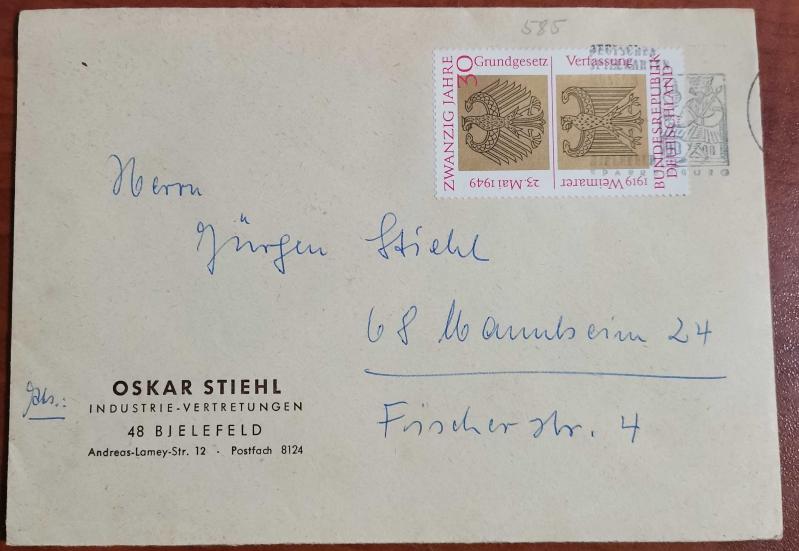 585
ZWANZIG JAHRE
30
Grundgesetz
23. Mai 1949
Verfassung
1919 Weimarer
BUNDESREPUBLIK
DEUTSCHLAND
DEUTSCHES
SPIELKARTEN
Herrn
Jürgen Stiehl
68 Mannheim 24
Fischerstr. 4
Abs.:
OSKAR STIEHL
INDUSTRIE-VERTRETUNGEN
48 BJELEFELD
Andreas-Lamey-Str. 12 · Postfach 8124